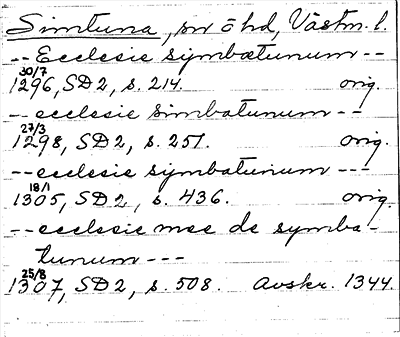 Simtuna, sn o hd, Västm. l.
-- Ecclesie symbatunum --
30/7
1296, SD 2, s. 214. orig.
-- ecclesie simbatunum --
27/3
1298, SD 2, s. 251. orig.
-- ecclesie symbatunum ---
18/1
1305, SD 2, s. 436. orig.
-- ecclesie mee de symba-
tunum ---
25/8
1307, SD 2, s. 508. Avskr. 1344.